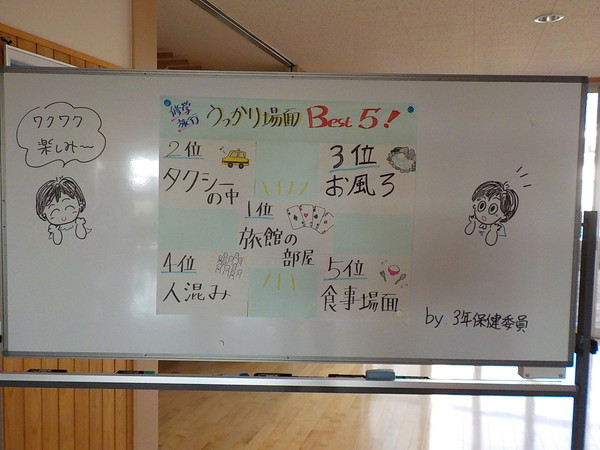 ワクワク
楽しみ～
修学
旅行
うっかり場面 Best 5!
2位
タクシー
の中
3位
お風ろ
1位
旅館の
部屋
4位
人混み
5位
食事場面
by. 3年保健委員